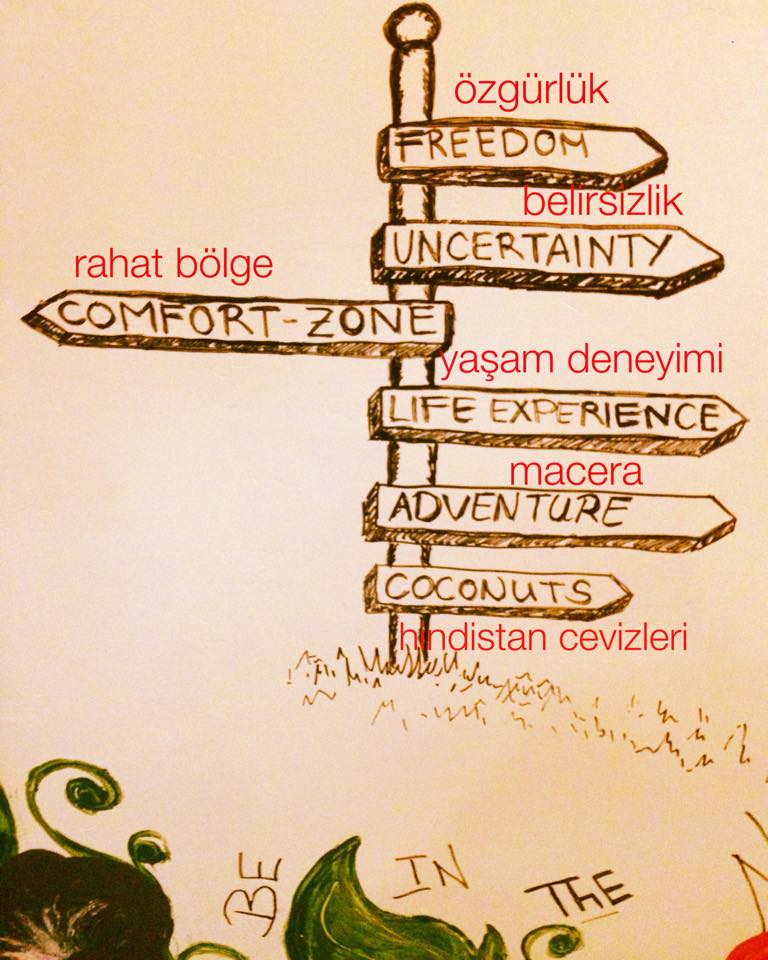 özgürlük
FREEDOM
belirsizlik
UNCERTAINTY
rahat bölge
COMFORT-ZONE
yaşam deneyimi
LIFE EXPERIENCE
macera
ADVENTURE
COCONUTS
hindistan cevizleri
BE IN THE